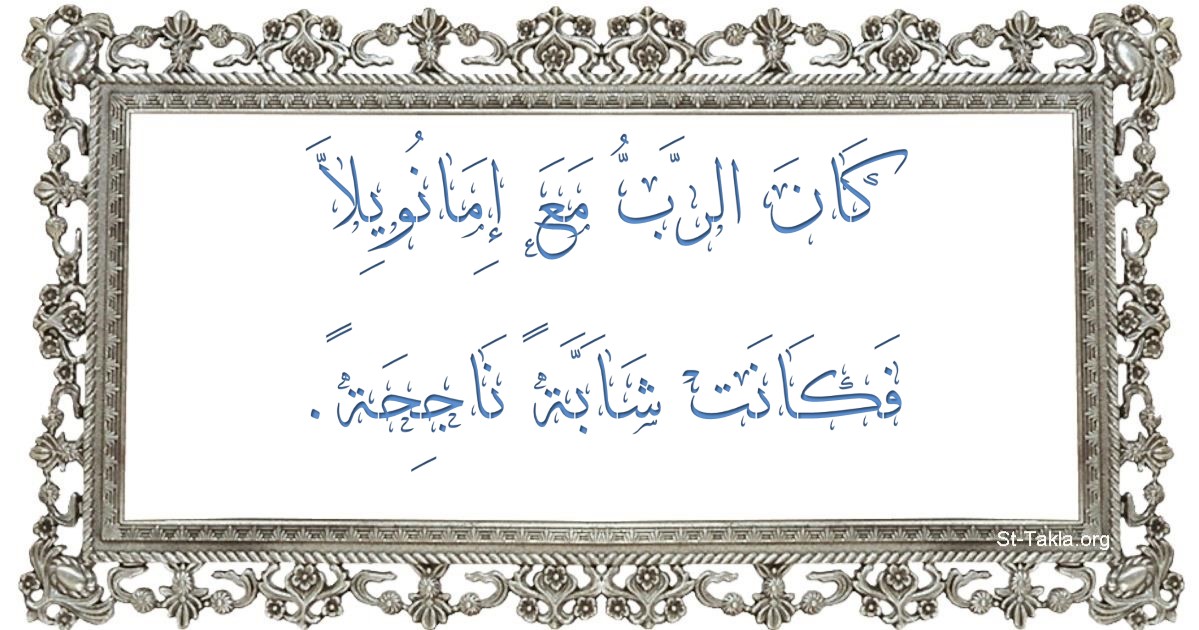 كَانَ الرَّبُّ مَعَ إِمَانُويِلاَّ
فَكَانَت شَابَّةً نَاجِحَةً.
St-Takla.org